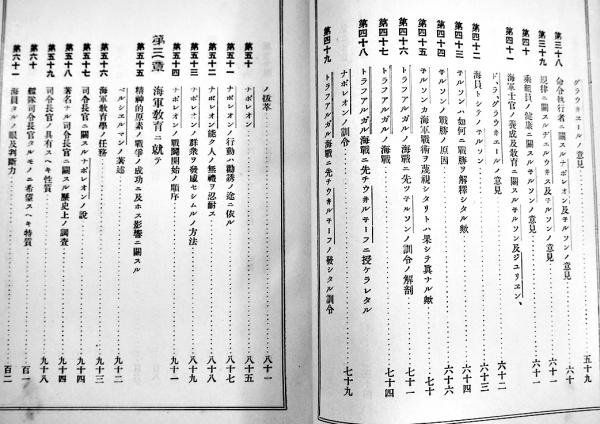 グラウヰエールノ意見……五十九
第三十八 命令執行者ニ關スルナポレオン及子ルソンノ意見……六十
第三十九 規律ニ關スルヂエルウ井ス及子ルソンノ意見……六十一
第四十 乘組員ノ健康ニ關スル子ルソンノ意見……六十一
第四十一 海軍士官ノ養成及教育ニ關スル子ルソン及ジユリエン、
ド、ラ、グラウ井エールノ意見……六十二
第四十二 海員トシテノ子ルソン……六十三
第四十三 子ルソンハ如何ニ戰勝ヲ解釋シタル歟……六十六
第四十四 子ルソン戰勝ノ原因……六十七
第四十五 子ルソンカ海軍戰術ヲ蔑視シタリトハ果シテ眞ナル歟……七十
第四十六 トラフアルガル海戰ニ先ツ子ルソンノ訓令ノ解剖……七十一
第四十七 トラフアルガル海戰……七十四
第四十八 トラフアルガル海戰ニ先チウ井ルチーフニ授ケラレタル
ナポレオンノ訓令……七十九
第四十九 トラフアルガル海戰ニ先チウ井ルチーフノ發シタル訓令
ノ拔萃……八十一
第五十 ナポレオン……八十五
第五十一 ナポレオンノ行動ハ勸誘ノ途ニ依ル……八十七
第五十二 ナポレオン能ク人ノ無禮ヲ忍耐ス……八十八
第五十三 ナポレオンノ群衆ヲ發威セシムルノ方法……八十九
第五十四 ナポレオンノ戰鬪開始ノ順序……九十一
第三章 海軍教育ニ就テ
第五十五 精神的原素ノ戰爭ノ成功ニ及ホス影響ニ關スル
ペルシエルマンノ著述……九十二
第五十六 海軍教育學ノ任務……九十三
第五十七 司令長官ニ關スルナポレオンノ說……九十四
第五十八 著名ナル司令長官ニ關スル歷史上ノ調査……九十四
第五十九 司令長官ノ具有スヘキ性質……九十八
第六十 艦隊司令長官タルモノニ希望スヘキ特質……百一
第六十一 海員タルノ眼及判斷力……百二